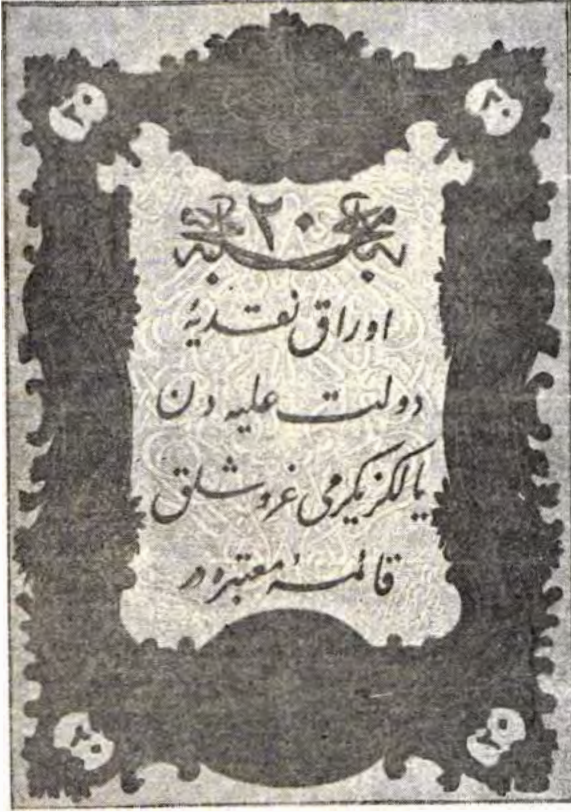 ٢٠ ٢٠
٢٠
اوراق نقديۀ
دولت عليه دن
يالكز يكرمی غروشلق
قائمۀ معتبره در
٢٠ ٢٠